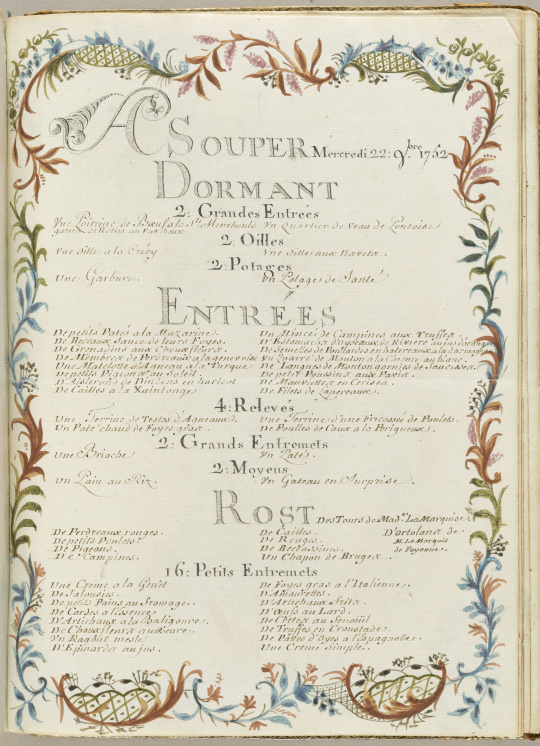 SOUPER Mercredi 22: 9.bre 1752
DORMANT
2: Grandes Entrées
Une Poitrine de Bœuf a la Ste Menehould Un Quartier de Veau de Pontoise
2 Oilles
Une Oille a la Crécy Une Oille aux Navets
2: Potages
Une Garbure. Un Potage de Santé
ENTRÉES
De petits Patés a la Mazarine. Un Hincée de Campines aux Truffes
De Beceaux Sauce de leurs Foyes. D'Estomachs d'Oyseaux de Riviere au jus d'orange
De Grenadins aux Choux fleurs. De Semelles de Poullardes en hatereaux a la
De Membres de Perdreaux a la genevoise Un Quarré de Mouton a la au blanc.
Une Matelotte d'Agneau a la Turque De Langues de Mouton garnies de Saucisses
De petits Pigeons au Soleil. De petits Poussins aux
D'Aislerons de Dindons en haricot De Mauviettes en Cerises.
De Cailles a la Xaintonge De Filets de Lapereaux.
4: Relevés
Une Terrine de Testes d'Agneaux. Une Terrine d'une Fricassée de Poulets.
Un Paté chaud de Foyes gras. De Poulles de Caux a la Perigueux.
2: Grands Entremets
Une Brioche Un Paté.
2: Moyens
Un Pain au Riz. Un Gateau en Surprise.
ROST Des Tours de Made. La Marquise.
De Perdreaux rouges. De Cailles. D'Ortolans de
De petits Poulets. De Rouges. M. Le Marquis
De Pigeons. De Becassines. de Peyonne.
De Campines. Un Chapon de Bruges.
16: Petits Entremets
Une Crème a la Genêt De Foyes gras a l'Italienne.
De Jalousies. D'Amourettes.
De petits Pains au Fromage. D'Artichaux Frits.
De Cardes a l'Essence. D'œufs au Lard.
D'Artichaux a la Baligoure. De Crêtes au Fenouil
De Choux fleurs au Beure. De Truffes en Croustade
Un Ragoût meslé De Pattes d'Oyes a l'Espagnolle.
D'Epinards au jus. Une Crème Simple.